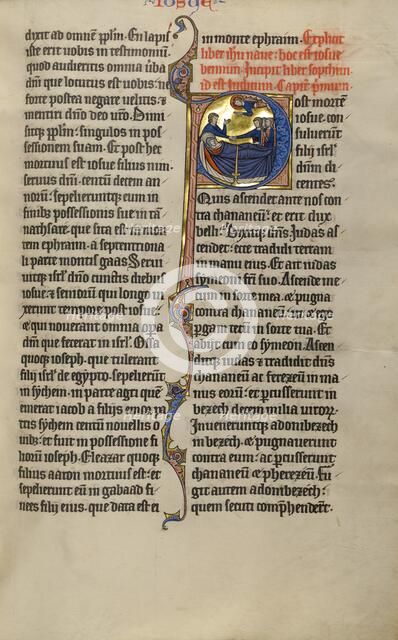 IOSUE
dixit ad omnem pplm. En lapis
iste erit vobis in testimoniu
quod audieritis omnia uba
dni que locutus est uobis: ne
forte postea negare uelitis: et
mentiri dno deo uro. Dimi
sitque pplm: singulos in pos
sessionem suam. Et post hec
mortuus est iosue filius nun
seruus dni. centu decem an
norum: sepelieruntque eum in
finibus possessionis sue in tā
nathsare que sita est in mon
te ephraim: a septentriona
li parte montis gaas. Serui
uitque isrl dno cunctis diebus
iosue: et seniorū qui longo ui
xerunt tempore post iosue:
et qui nouerant omnia opa
dni que fecerat in isrl. Ossa
quoque ioseph. que tulerant
filii isrl de egypto. sepelierūt
in sychem: in parte agri quē
emerat iacob a filiis emor pa
tris sychem centū nouellis o
uibus: et fuit in possessione fi
liorū ioseph. Eleazar quoque
filius aaron mortuus est: et
sepelierunt eū in gabaad fi
nees filii eius. que data est ei
in monte ephraim. Explicit
liber ihu naue: hoc est iosue
bennun. Incipit liber sopthim
id est iudicum. Capitm primum.
Post mortē
iosue. con
suluerunt
filii isrl
dnm di
centes.
Quis ascendet ante nos con
tra chananeū: et erit dux
belli? Dixitque dns. Iudas as
cendet: ecce tradidi terram
in manu eius. Et ait iudas
symeoni frī suo. Ascende me
cum in sorte mea: et pugna
contra chananeū: ut et ego
pergam tecū in sorte tua. Et
abijt cum eo symeon. Ascen
ditque iudas: et tradidit dns
chananeū ac ferezeū in ma
nus eorū: et pcusserunt in
bezech decem milia uirorū.
Inueneruntque adonibezech
in bezech: et pugnauerunt
contra eum: ac pcusserunt
chananeū et pherezeū. Fu
git autem adonibezech:
quem secuti comprehenderunt.
heritage
Images